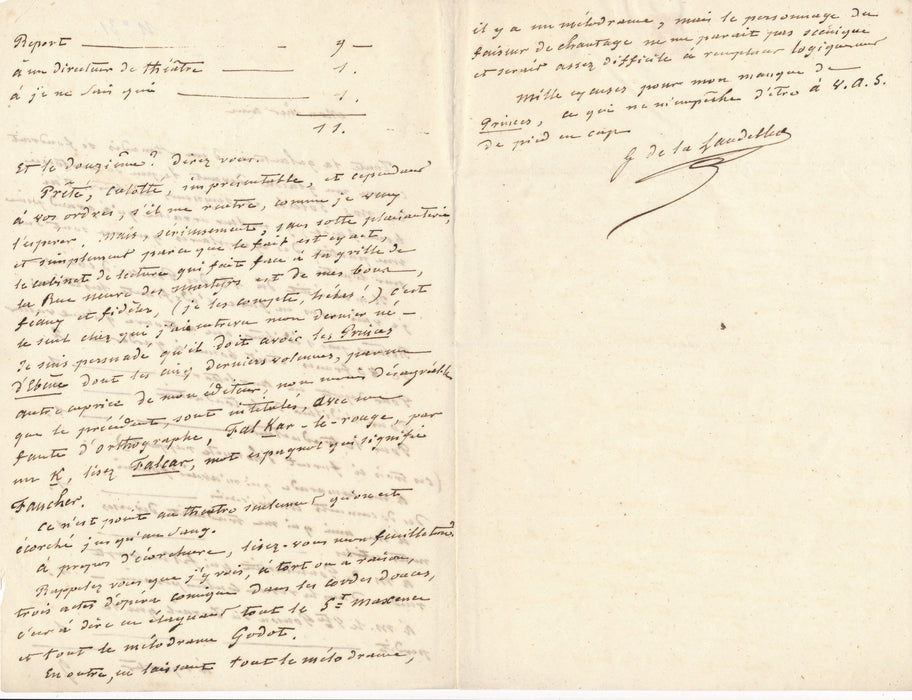 Report — 9 —
à un directeur de théâtre — 1.
à je ne sais qui — 1.
11.
Et le douzième ? direz vous.
Prêté, culotté, imprésentable, et cependant
à vos ordres, s'il me rentre, comme je veux
l'espérer. Mais, sérieusement, sans sotte plaisanterie,
et simplement parce que le fait est exact,
le cabinet de lecture qui fait face à la grille de
la Rue neuve des martyrs est de mes bons,
féaux et fidèles, (je les compte, hélas !) c'est
le seul chez qui j'aie retrouvé mon dernier né —
Je suis persuadé qu'il doit avoir les Princes
d'Ebène dont les cinq derniers volumes, par un
autre caprice de mon éditeur, non moins désagréable
que le précédent, sont intitulés, avec une
faute d'orthographe, Fal Kar-le-rouge, par
un K, lisez Falcar, mot espagnol qui signifie
Faucher.
Ce n'est point au théâtre seulement qu'on est
écorché jusqu'au sang.
à propos d'écorchure, lisez-vous mon feuilleton ?
Rappelez vous que j'y vois, à tort ou à raison,
trois actes d'opéra comique dans les cordes douces,
c'est à dire en élaguant tout le St Maxence
et tout le mélodrame Godot.
En outre, en laissant tout le mélodrame,
il y a un mélodrame, mais le personnage du
faiseur de chantage ne me parait pas scénique
et serait assez difficile à remplacer logiquement
Mille excuses pour mon manque de
Princes, ce qui ne m'empêche d'être à V. A. S.
de pied en cap
G de la Landelle